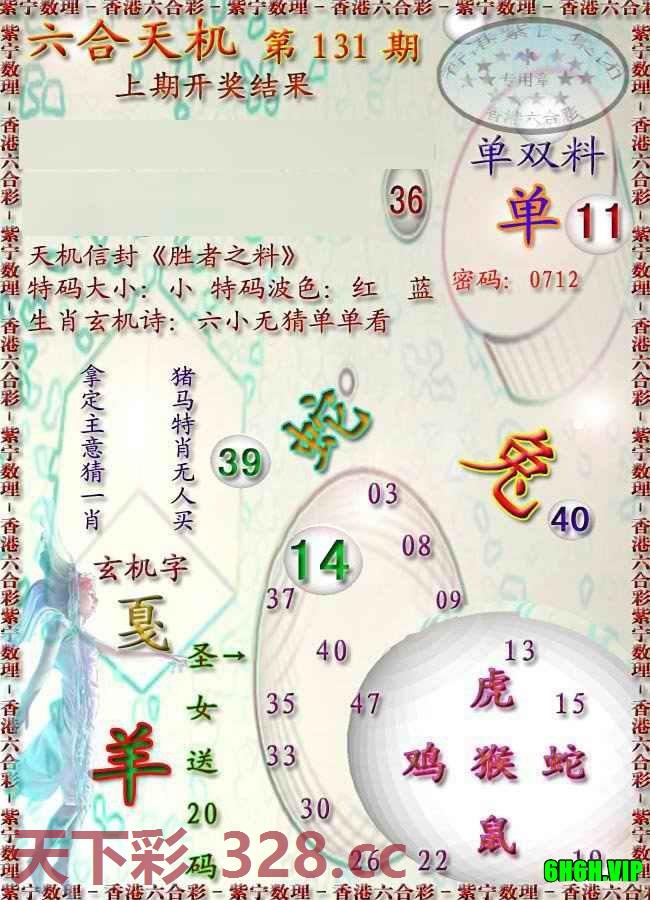 紫宁数理－香港六合彩－紫宁数理－香港六合彩－紫宁数理－香港六合彩
六合天机 第 131 期
上期开奖结果
专用章
香港六合彩
单双料
36
单 11
天机信封《胜者之料》
特码大小：小 特码波色：红 蓝
密码：0712
生肖玄机诗：六小无猜单单看
猪马特肖无人买
拿定主意猜一肖
蛇
39
兔
40
03
14
08
37
09
玄机字
戛
40
13
圣→
女
送
20
码
35
47
15
33
30
26
22
19
虎
鸡 猴 蛇
鼠
羊
天下彩.328.cc
6H6H.VIP
紫宁数理－香港六合彩－紫宁数理－香港六合彩－紫宁数理－香港六合彩